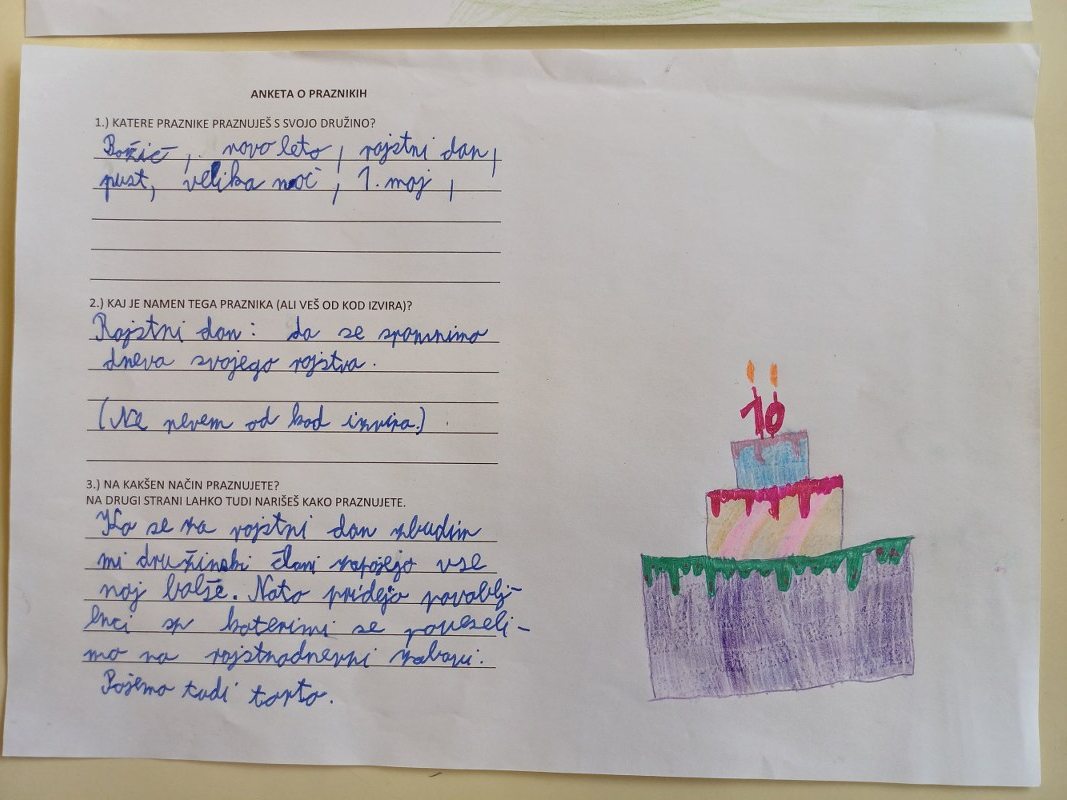 ANKETA O PRAZNIKIH
1.) KATERE PRAZNIKE PRAZNUJEŠ S SVOJO DRUŽINO?
Božič, novo leto, rojstni dan,
pust, velika noč, 1. maj,
2.) KAJ JE NAMEN TEGA PRAZNIKA (ALI VEŠ OD KOD IZVIRA)?
Rojstni dan: da se spomnimo
dneva svojega rojstva.
(Ne nevem od kod izvira.)
3.) NA KAKŠEN NAČIN PRAZNUJETE?
NA DRUGI STRANI LAHKO TUDI NARIŠEŠ KAKO PRAZNUJETE.
Ko se za rojstni dan zbudim
mi družinski člani zapojejo vse
naj bolše. Nato pridejo povablj-
enci s katerimi se poveseli-
mo na rojstnodnevni zabavi.
Pojemo tudi torto.
10